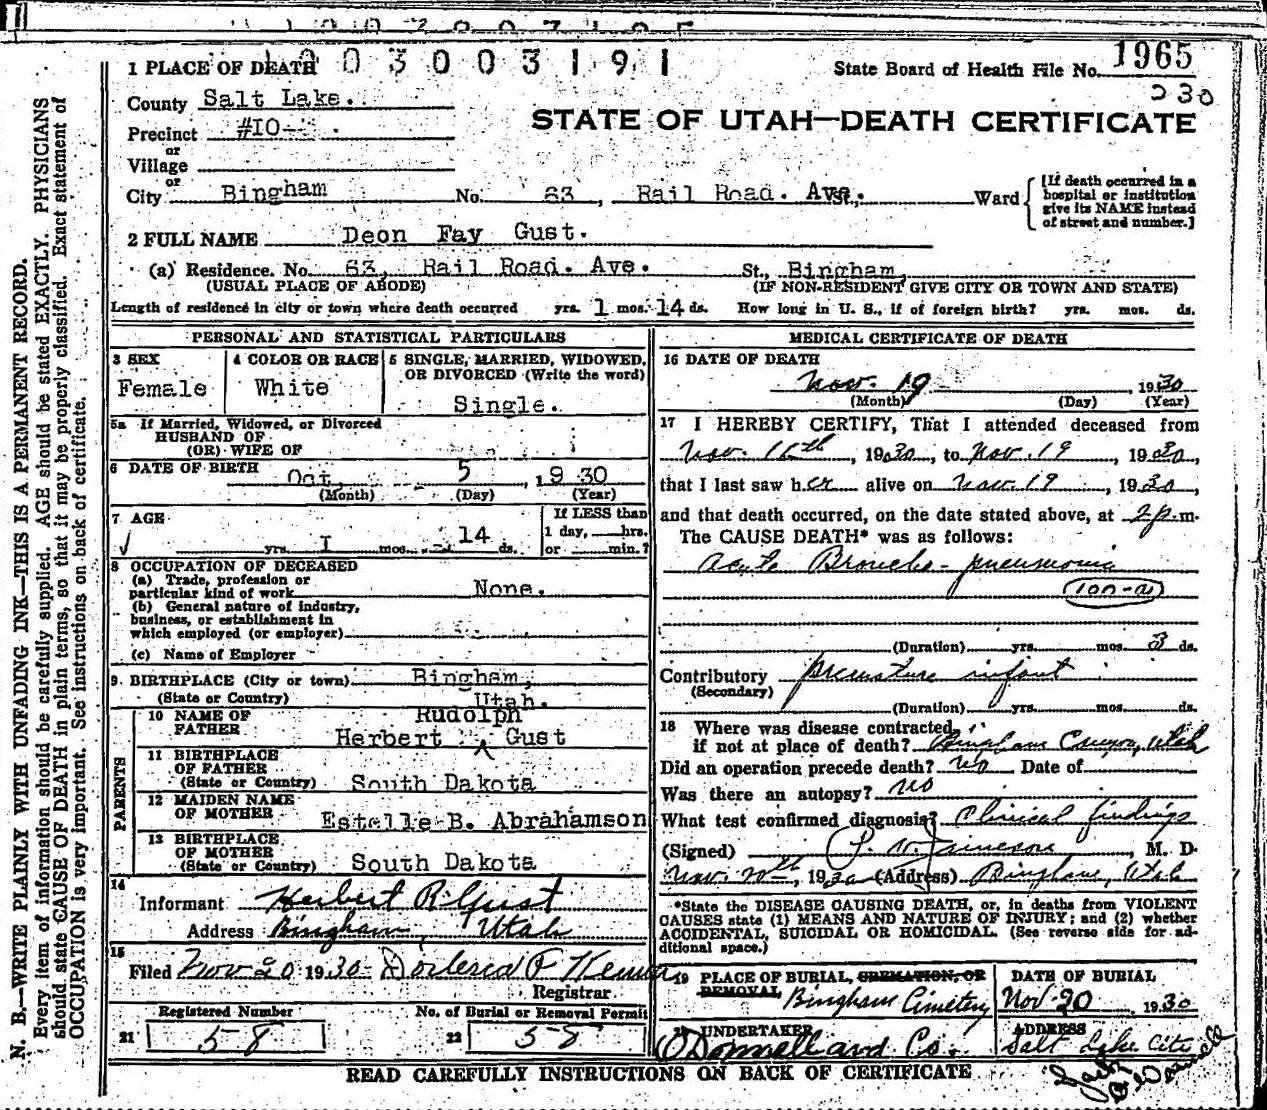 1 PLACE OF DEATH 003003191
State Board of Health File No. 1965
230
County Salt Lake.
STATE OF UTAH—DEATH CERTIFICATE
Precinct #10-
or
Village
or
City Bingham No. 63, Rail Road. Ave. St., Ward
[If death occurred in a
hospital or institution
give its NAME instead
of street and number.]
2 FULL NAME Deon Fay Gust.
(a) Residence. No. 63, Rail Road. Ave. St., Bingham,
(USUAL PLACE OF ABODE) (IF NON-RESIDENT GIVE CITY OR TOWN AND STATE)
Length of residence in city or town where death occurred yrs. 1 mos. 14 ds. How long in U. S., if of foreign birth? yrs. mos. ds.
PERSONAL AND STATISTICAL PARTICULARS
3 SEX
Female
4 COLOR OR RACE
White
5 SINGLE, MARRIED, WIDOWED,
OR DIVORCED (Write the word)
Single.
5a If Married, Widowed, or Divorced
HUSBAND OF
(OR) WIFE OF
6 DATE OF BIRTH Oct 5, 1930
(Month) (Day) (Year)
7 AGE
yrs. 1 mos. 14 ds.
If LESS than
1 day, hrs.
or min.?
8 OCCUPATION OF DECEASED
(a) Trade, profession or
particular kind of work None.
(b) General nature of industry,
business, or establishment in
which employed (or employer)
(c) Name of Employer
9 BIRTHPLACE (City or town) Bingham,
(State or Country) Utah.
PARENTS
10 NAME OF
FATHER
Rudolph
Herbert ^ Gust
11 BIRTHPLACE
OF FATHER
(State or Country) South Dakota
12 MAIDEN NAME
OF MOTHER Estelle B. Abrahamson
13 BIRTHPLACE
OF MOTHER
(State or Country) South Dakota
14
Informant Herbert R. Gust
Address Bingham, Utah
15
Filed Nov 20 1930
Registrar.
Registered Number
21 58
No. of Burial or Removal Permit
22 58
MEDICAL CERTIFICATE OF DEATH
16 DATE OF DEATH
Nov. 19 1930
(Month) (Day) (Year)
17 I HEREBY CERTIFY, That I attended deceased from
Nov. 1930, to Nov. 19, 1930,
that I last saw her alive on Nov. 19, 1930,
and that death occurred, on the date stated above, at 2 p.m.
The CAUSE DEATH* was as follows:
Acute Broncho-pneumonia
(Duration) yrs. mos. 3 ds.
Contributory premature infant
(Secondary)
(Duration) yrs. mos. ds.
18 Where was disease contracted,
if not at place of death? Bingham Canyon, Utah
Did an operation precede death? No Date of
Was there an autopsy? No
What test confirmed diagnosis? Clinical findings
(Signed) Jameson, M. D.
Nov. 20th, 1930 (Address) Bingham, Utah
*State the DISEASE CAUSING DEATH, or, in deaths from VIOLENT
CAUSES state (1) MEANS AND NATURE OF INJURY; and (2) whether
ACCIDENTAL, SUICIDAL OR HOMICIDAL. (See reverse side for ad-
ditional space.)
19 PLACE OF BURIAL, CREMATION, OR
REMOVAL Bingham Cimetery
DATE OF BURIAL
Nov. 20 1930
UNDERTAKER
O'Donnell and Co.
ADDRESS
Salt Lake City
READ CAREFULLY INSTRUCTIONS ON BACK OF CERTIFICATE
N. B.—WRITE PLAINLY WITH UNFADING INK—THIS IS A PERMANENT RECORD.
Every item of information should be carefully supplied. AGE should be stated EXACTLY. PHYSICIANS
should state CAUSE OF DEATH in plain terms, so that it may be properly classified. Exact statement of
OCCUPATION is very important. See instructions on back of certificate.